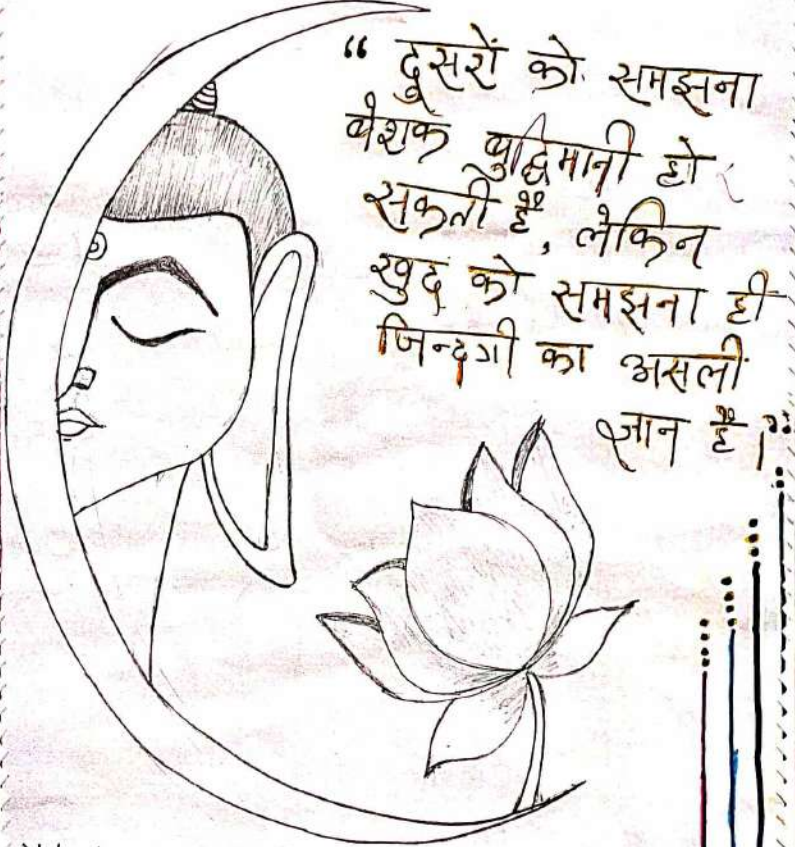 “ दूसरों को समझना
बेशक बुद्धिमानी हो
सकती है, लेकिन
खुद को समझना ही
जिन्दगी का असली
ज्ञान है।”